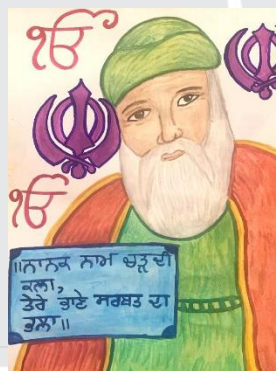 ੴ
ੴ
॥ਨਾਨਕ ਨਾਮ ਚੜ੍ਹਦੀ
ਕਲਾ,
ਤੇਰੇ ਭਾਣੇ ਸਰਬਤ ਦਾ
ਭਲਾ॥